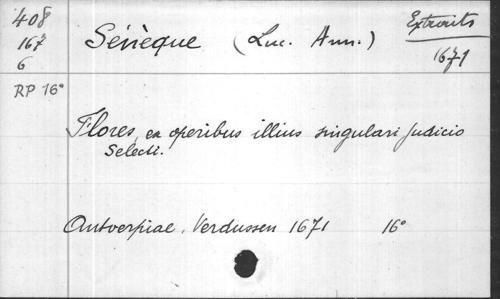 408
167
6
RP 16°
Sénèque (Luc. Ann.)
Extraits
1671
Flores, ex operibus illius singulari judicio
Selecti.
Antverpiae, Verdussen 1671 16°